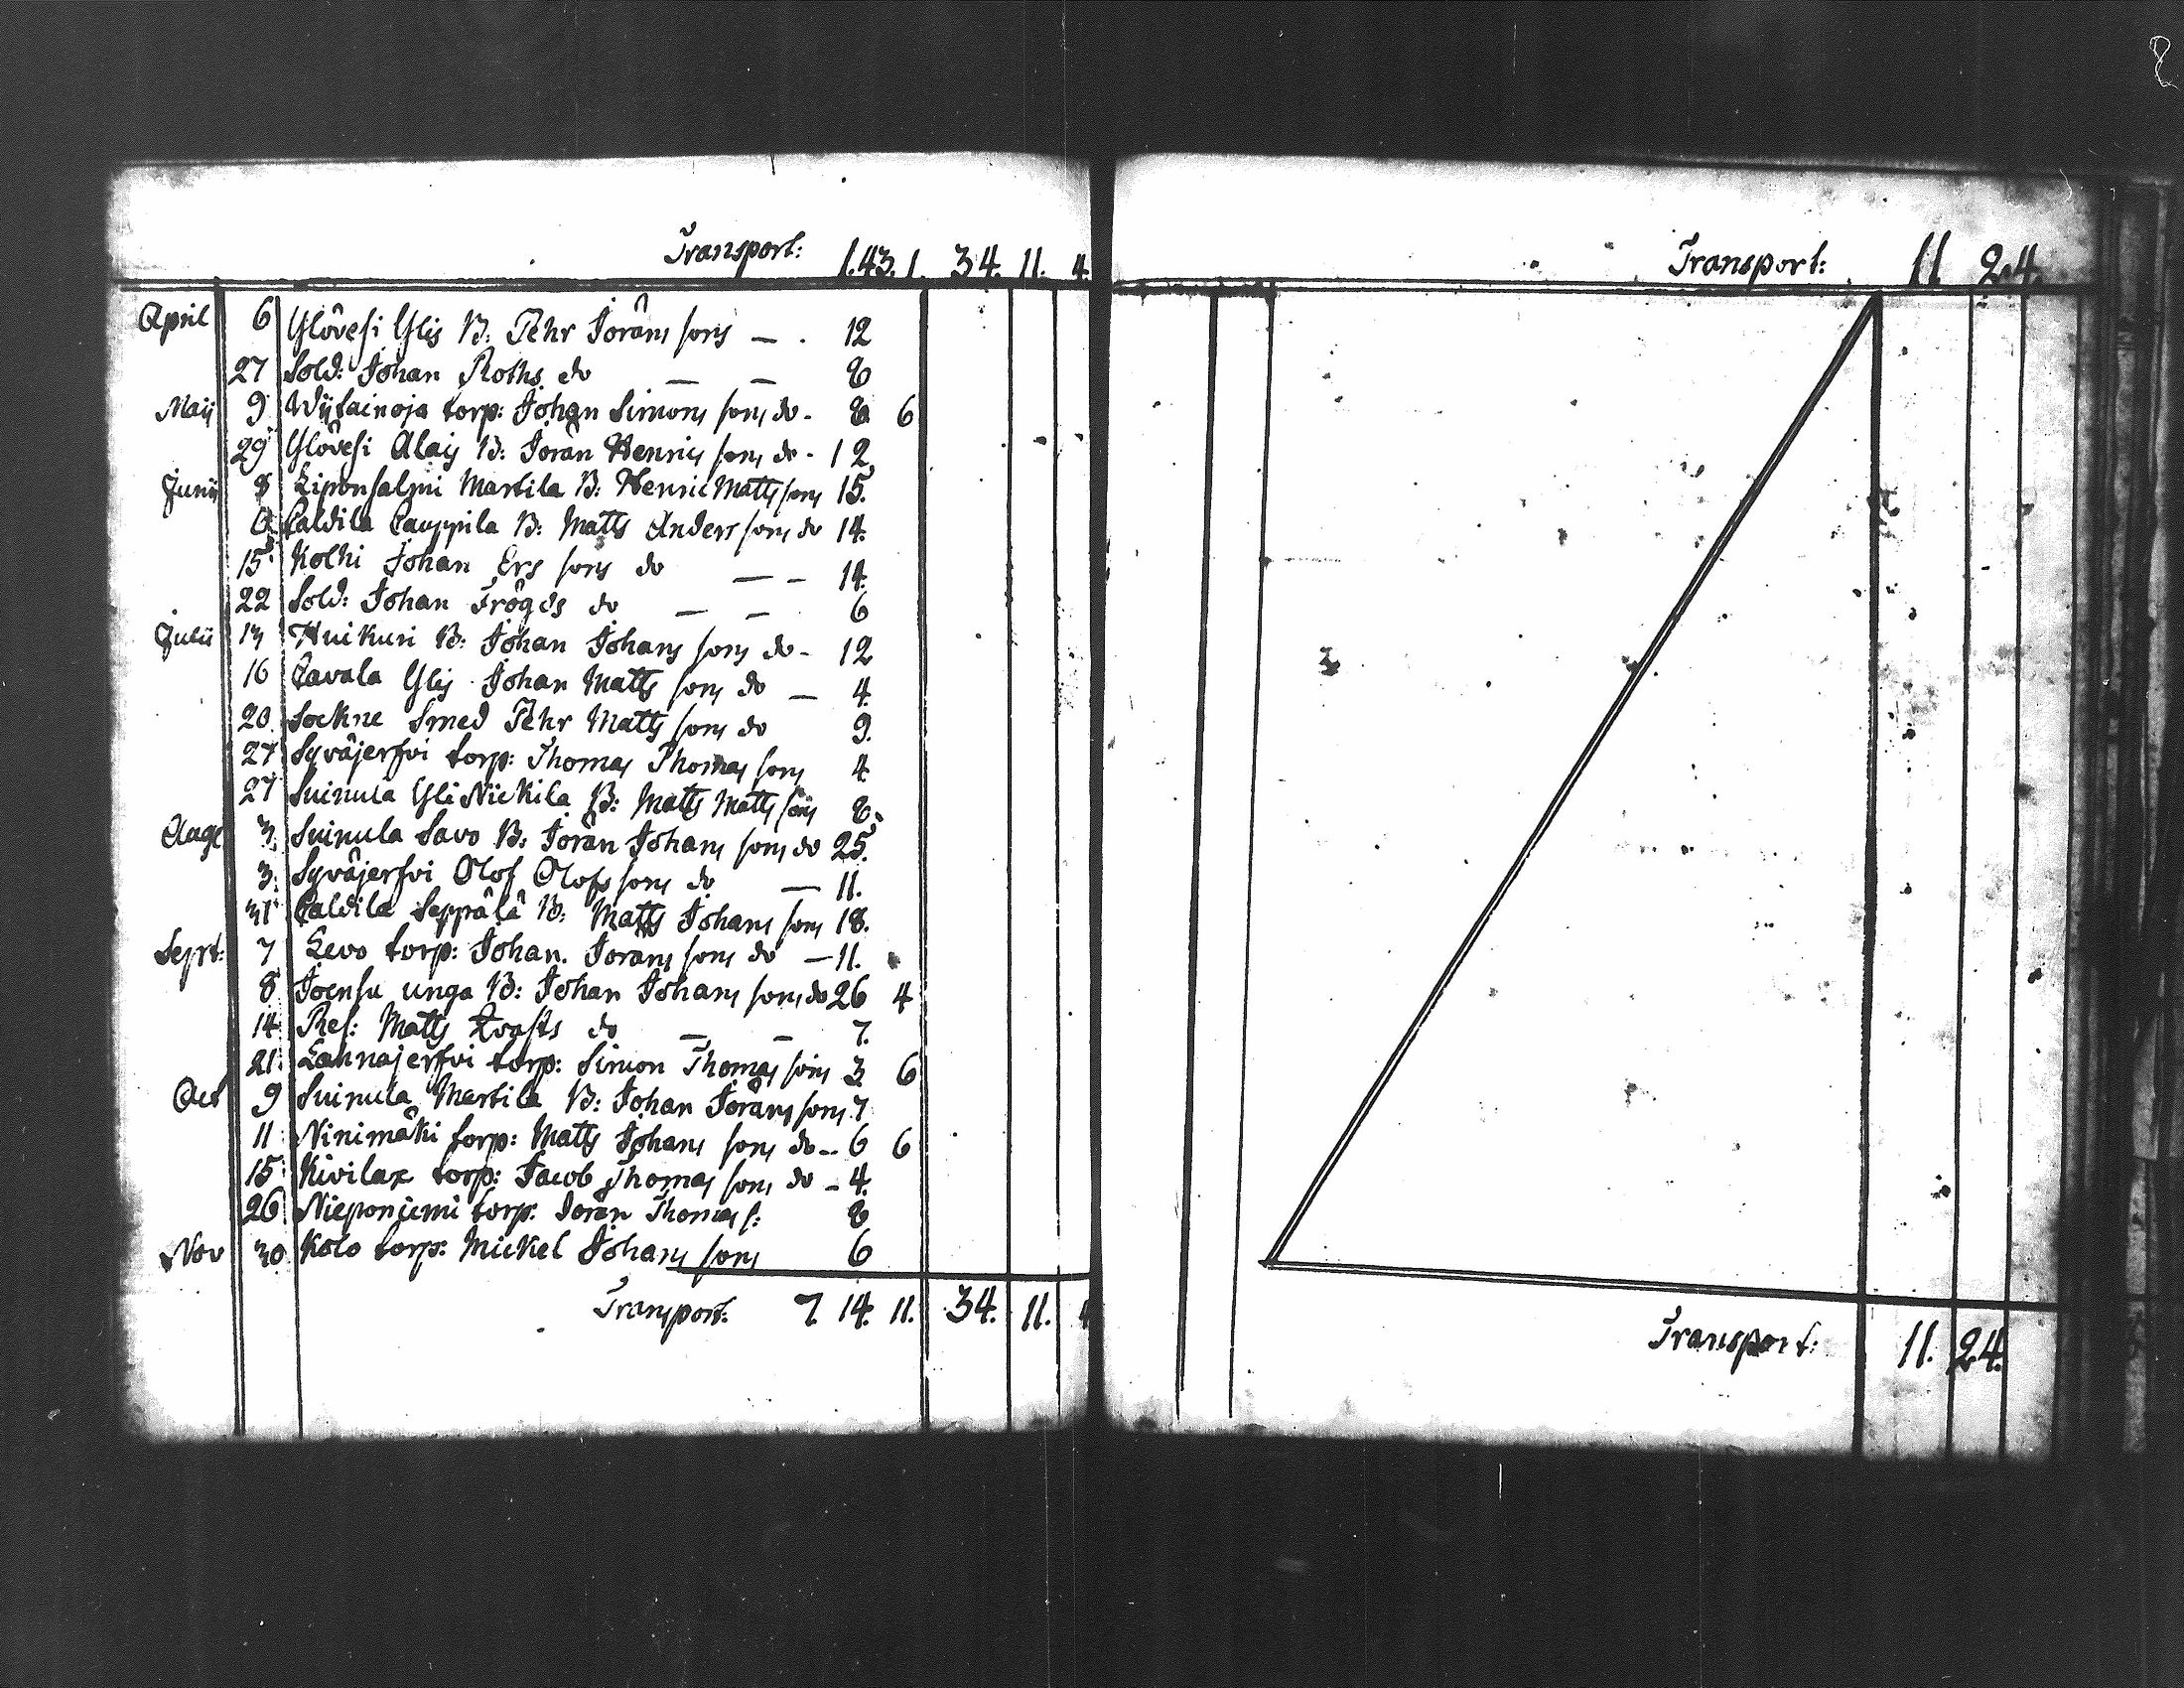 Transport: 1.43. 1. 34. 11. 4.
April 6 Ylôvesi Ylis B: Pehr Jorâns sons — . 12
27 Sold: Johan Roths do — — 8
Maij 9 Wijtainoja torp: Johan Simons sons do - 8 6
29 Ylôvesi Alais B: Jorân Henrics sons do - 12
Junii 8 Liponsalmi Martila B: Henric Matts sons 15.
Caldila Cauppila B: Matts Anders sons do 14.
15. Kolhi Johan Ers sons do — — 14.
22 Sold: Johan Frögds do — — 6
Julii 13 Huikuri B: Johan Johans sons do - 12
16 Cavala Ylis Johan Matts sons do — 4.
20. Sockne Smed Pehr Matts sons do 9.
27 Syvâjerfvi torp: Thomas Thomas sons 4
27 Suinula Yli Niekila B: Matts Matts sons 8.
Aug 3. Suinula Savo B: Jorân Johans sons do 25.
3. Syvâjerfvi Olof Olofs sons do — 11.
31 Caldila Seppâlâ B: Matts Johans sons 18.
Sept: 7 Levo torp: Johan Jorans sons do — 11.
8 Joensu unga B: Johan Johans sons do 26 4
14 Ref: Matts Qvasts do — — 7.
21. Lahnajerfvi torp: Simon Thomas sons 3 6
Oct 9 Suinula Martila B: Johan Jorâns sons 7
11 Ninimâki torp: Matts Johans sons do - 6 6
15 Kivilax torp: Jacob Thomas sons do - 4.
26. Nieponiemi torp: Jorân Thomas s: 8
Nov 30 Kolo torp: Mickel Johans sons 6
Transport: 7. 14. 11. 34. 11. 4
Transport: 11 24.
Transport: 11. 24.